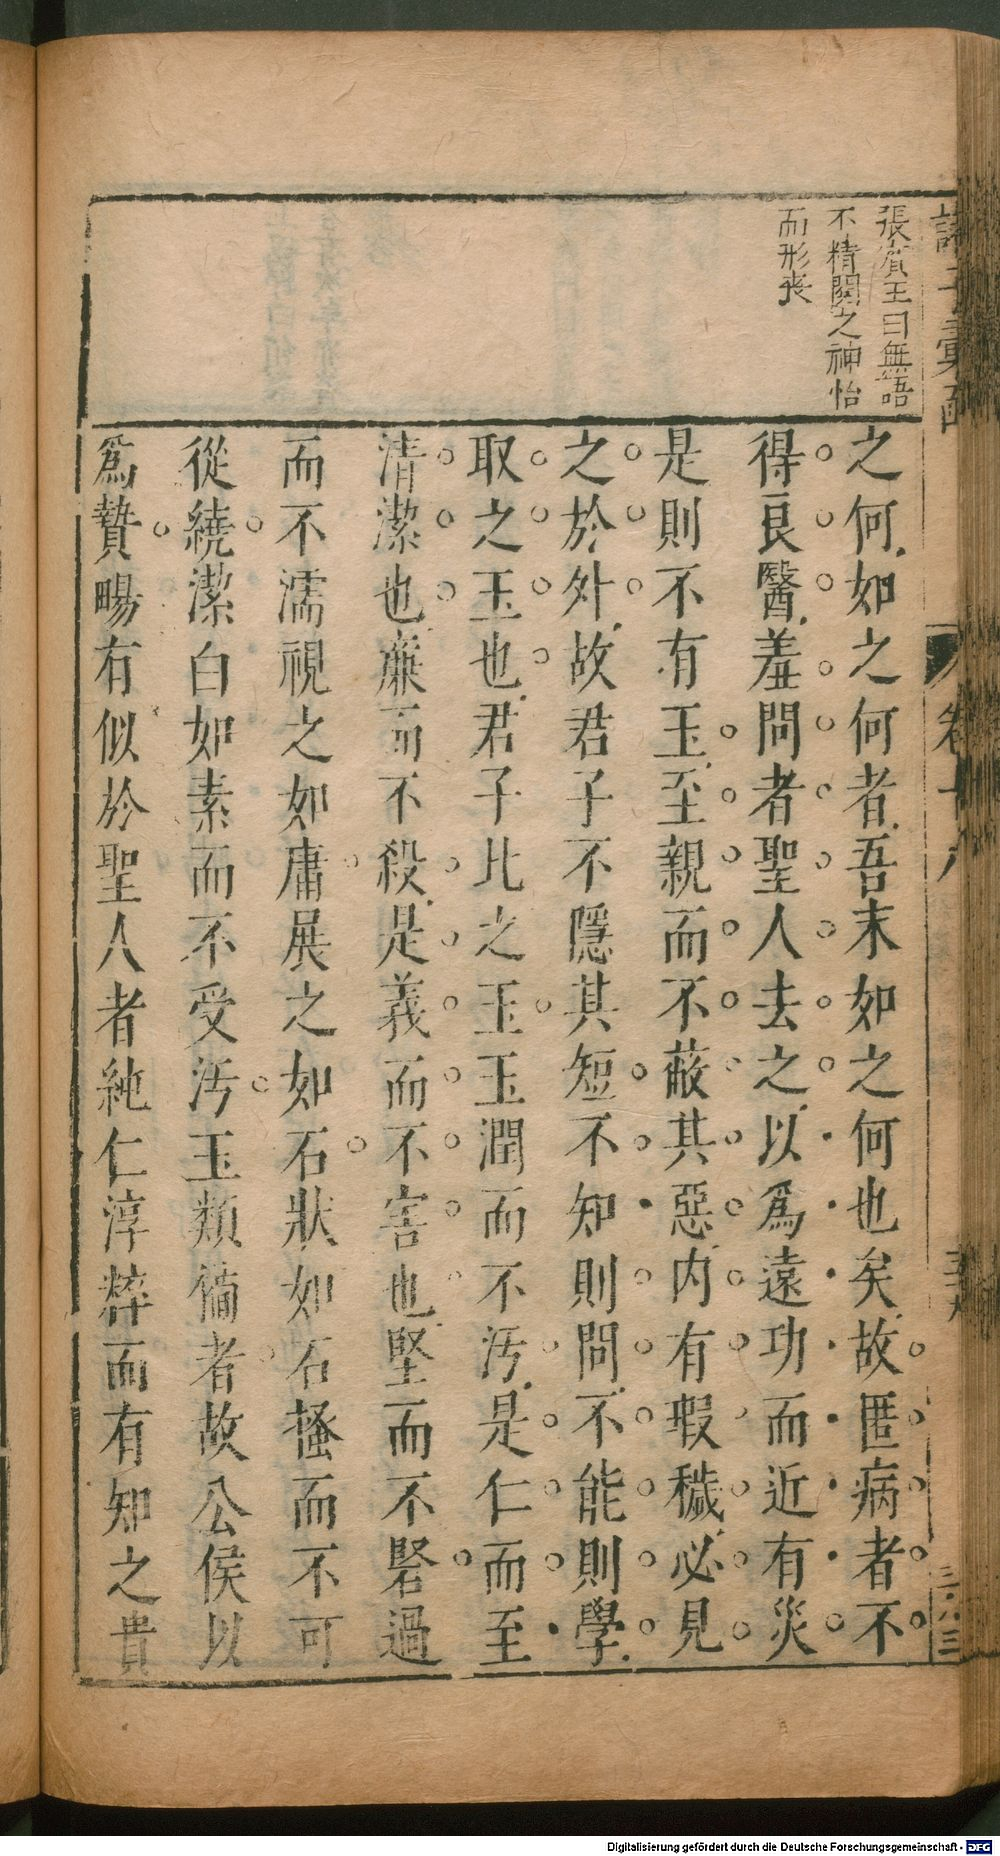 張賓王曰無語
不精閱之神怡
而形喪
之何如之何者吾末如之何也矣故匿病者不
得良醫羞問者聖人去之以為遠功而近有災
是則不有玉至親而不蔽其惡內有瑕穢必見
之於外故君子不隱其短不知則問不能則學
取之玉也君子比之玉玉潤而不汚是仁而至
清潔也廉而不殺是義而不害也堅而不磬過
而不濡視之如庸展之如石狀如石搔而不可
從繞潔白如素而不受汚玉類備者故公侯以
為贄暢有似於聖人者純仁淳粹而有知之貴
卷十八
Digitalisierung gefördert durch die Deutsche Forschungsgemeinschaft - DFG